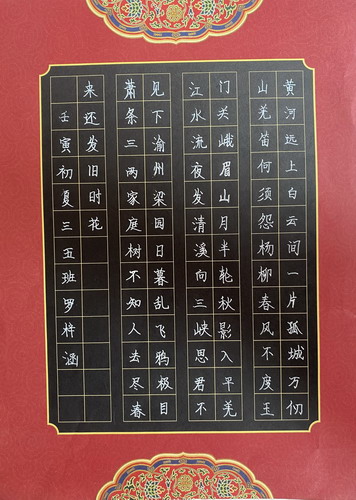 黄河远上白云间一片孤城万仞
山羌笛何须怨杨柳春风不度玉
门关峨眉山月半轮秋影入平羌
江水流夜发清溪向三峡思君不
见下渝州梁园日暮乱飞鸦极目
萧条三两家庭树不知人去尽春
来还发旧时花
壬寅初夏三五班罗梓涵